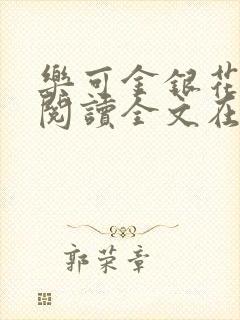 樂可金銀花
閱讀全文在
郭荣章